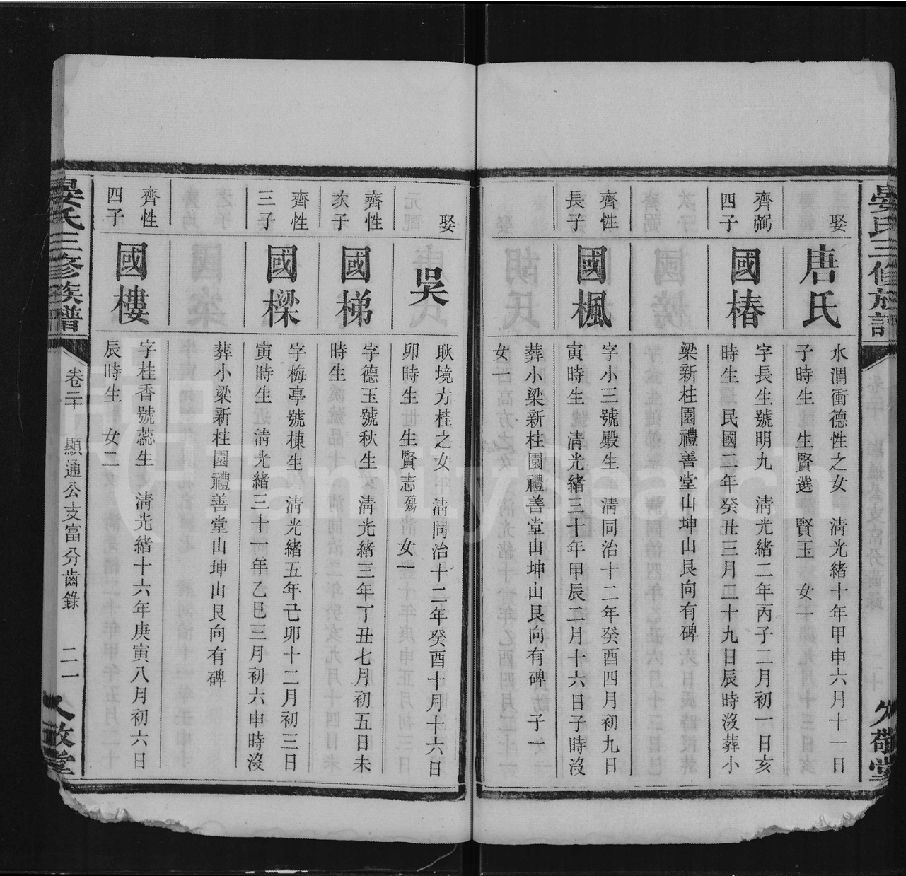 晏氏三修族譜
久敬堂
娶
唐氏
水渭衝德性之女 清光緒十年甲申六月十一日
子時生 生賢 賢玉 女一
齊弼
四子
國椿
字長生號明九 清光緒二年丙子二月初一日亥
時生 民國二年癸丑三月二十九日辰時沒葬小
梁新桂園禮善堂山坤山艮向有碑
齊性
長子
國楓
字小三號殿生 清同治十二年癸酉四月初九日
寅時生 清光緒三十年甲辰二月十六日子時沒
葬小梁新桂園禮善堂山坤山艮向有碑 子一
女一
娶
吳
耿境方桂之女 清同治十二年癸酉十月十六日
卯時生 生賢志殤 女一
齊性
次子
國梯
字德玉號秋生 清光緒三年丁丑七月初五日未
時生
齊性
三子
國樑
字梅亭號棟生 清光緒五年己卯十二月初三日
寅時生 清光緒三十一年乙巳三月初六申時沒
葬小梁新桂園禮善堂山坤山艮向有碑
齊性
四子
國樓
字桂香號蕊生 清光緒十六年庚寅八月初六日
辰時生 女二
晏氏三修族譜
卷二十 顯通公支富分齒錄
二一
久敬堂